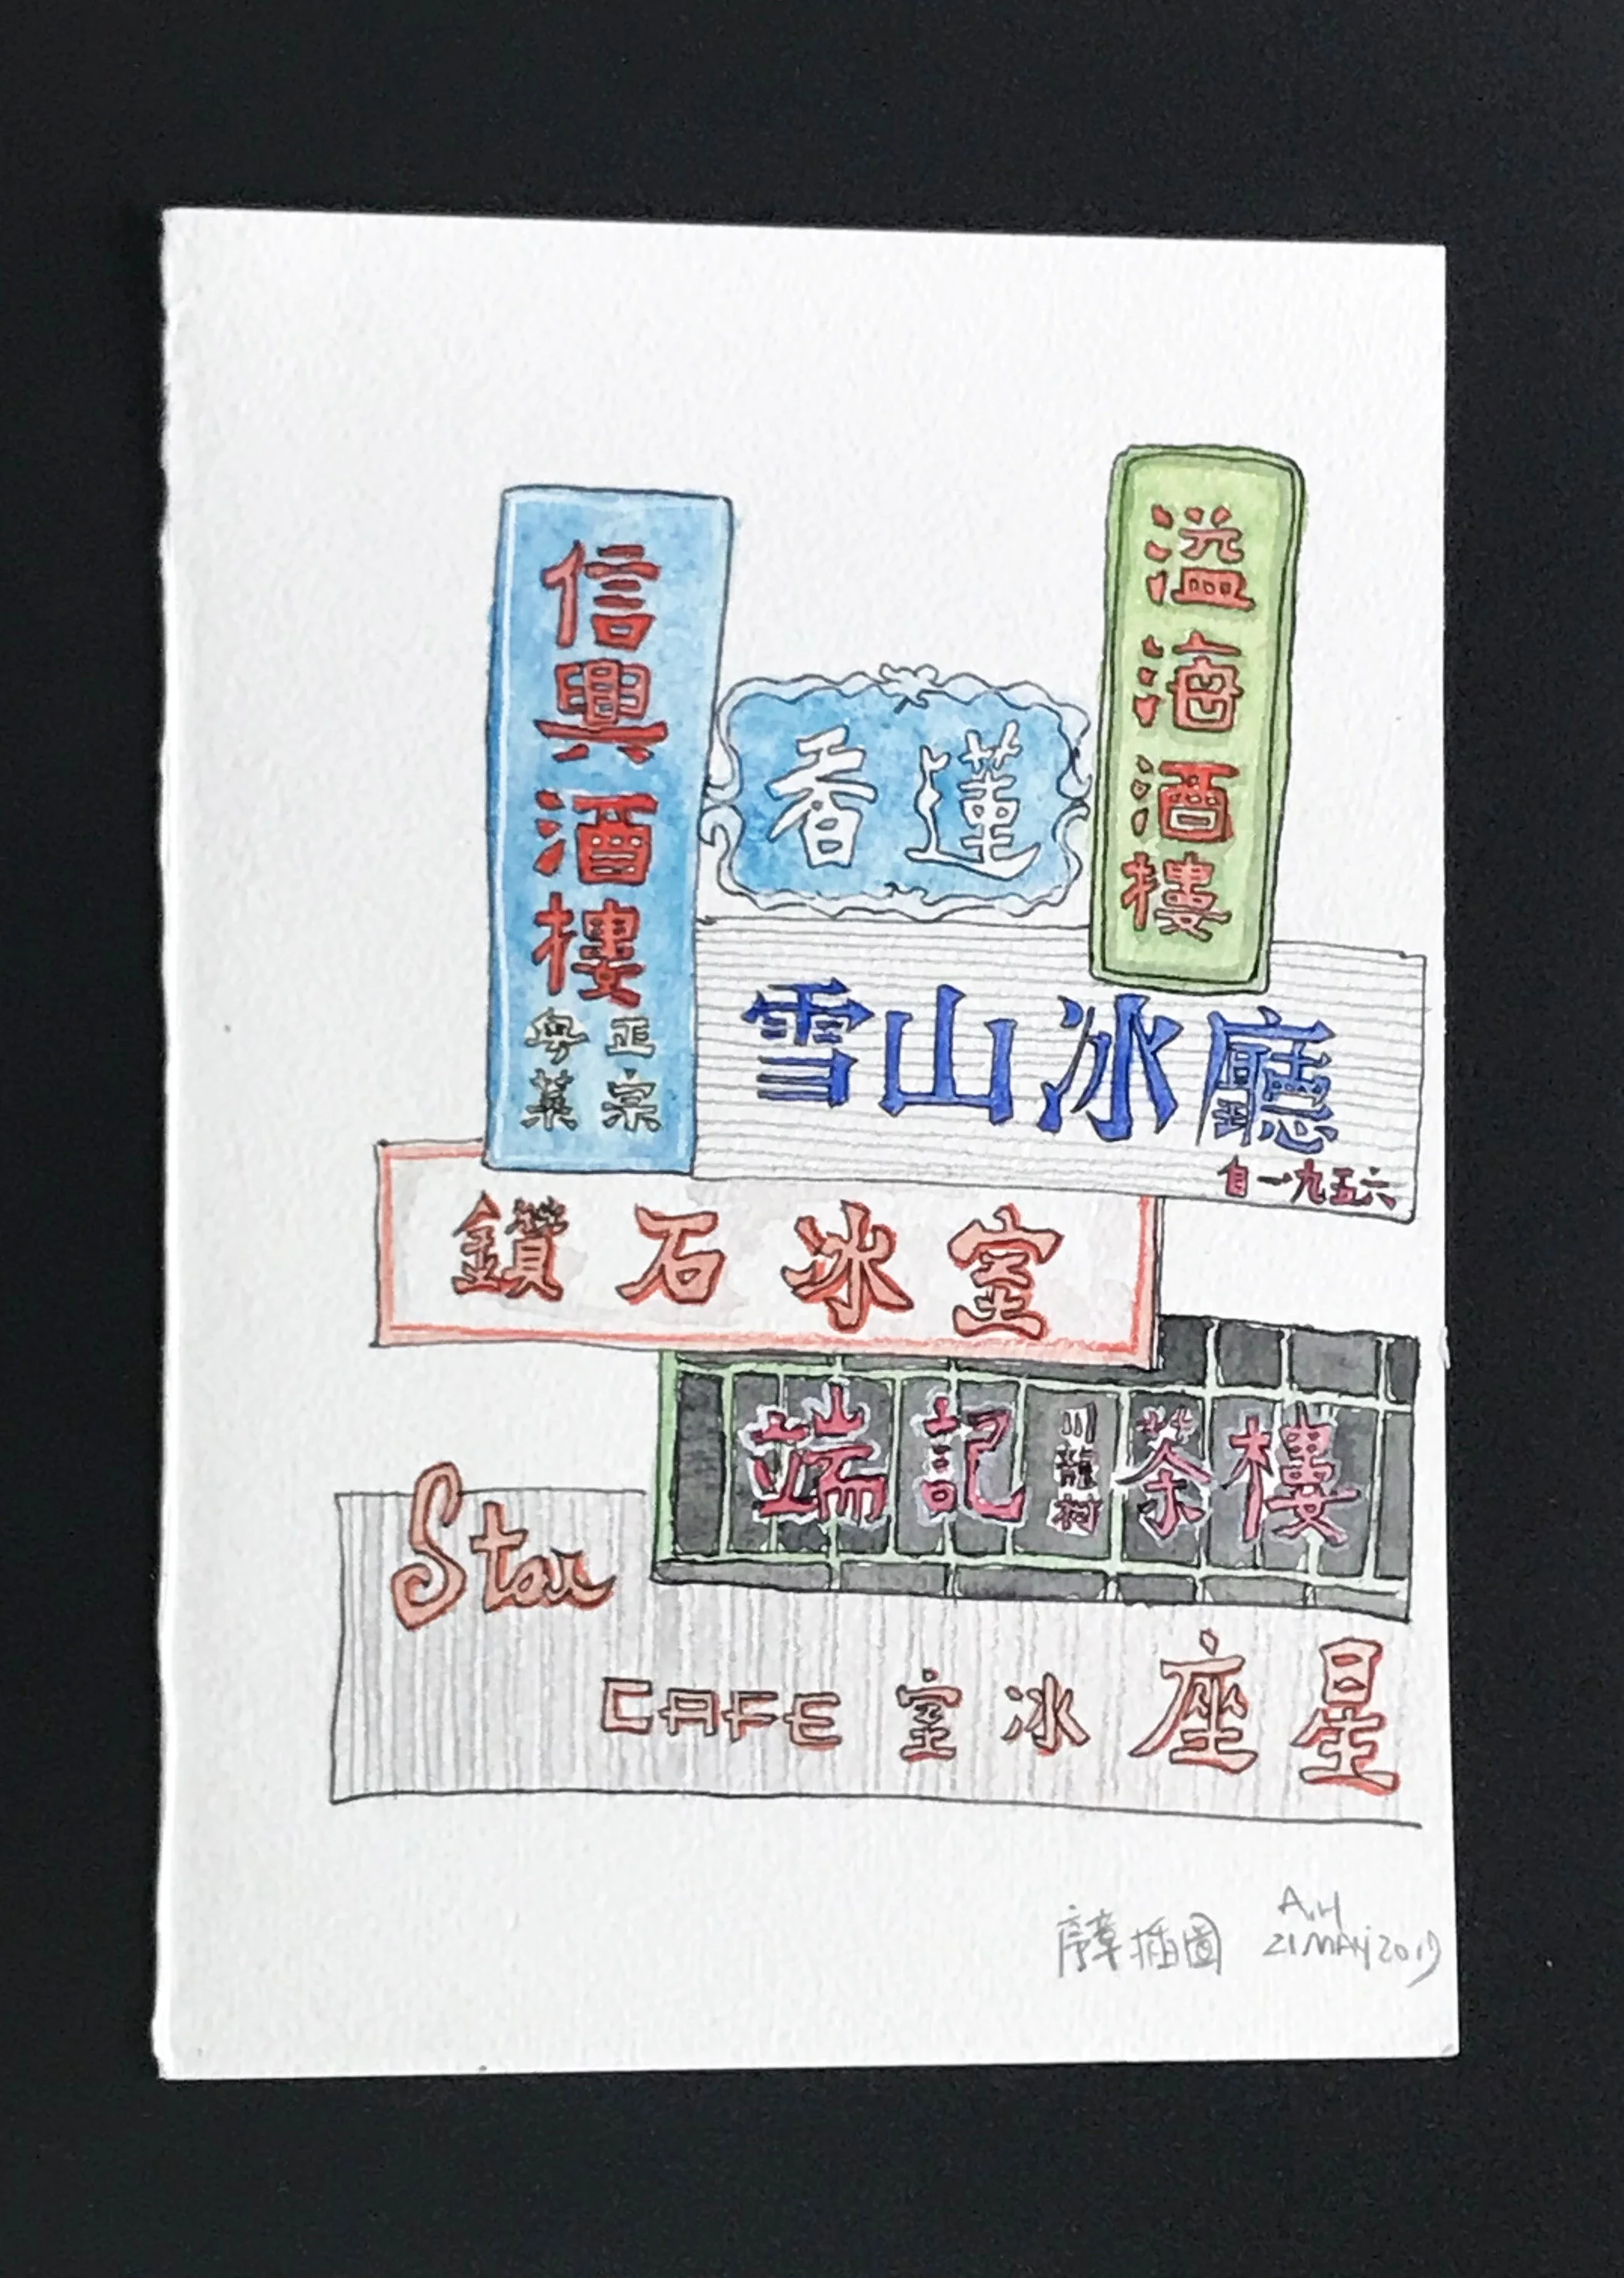 信興酒樓
正宗
粵菜
香蓮
溢海酒樓
雪山冰廳
自一九五六
鑽石冰室
端記川龍村茶樓
Star
CAFE 室冰座星
序章插圖
A.H
21 MAY 2019